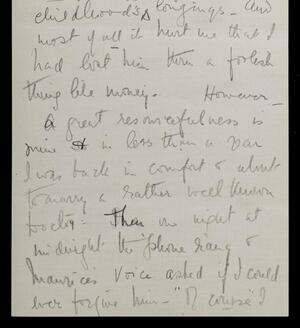 childhood's longings - and
most of all it hurt me that I
had lost him thru a foolish
thing like money. However -
A great resourcefulness is
mine & in less than a year
I was back in comfort & about
to marry a rather well known
Doctor - Then one night at
midnight the 'phone rang &
Maurice's voice asked if I could
ever forgive him - "Of course" I